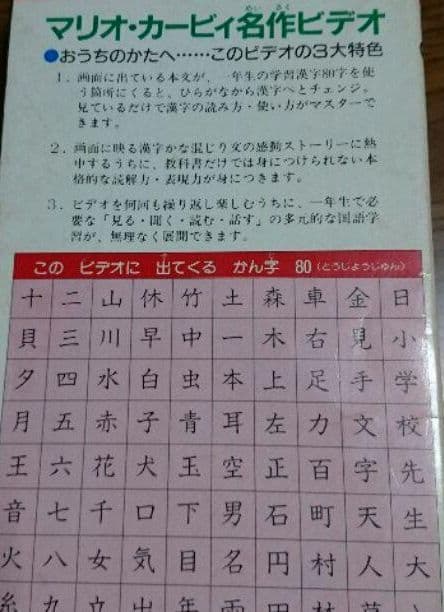 めい さく
マリオ・カービィ名作ビデオ
●おうちのかたへ……このビデオの3大特色
1. 画面に出ている本文が、一年生の学習漢字80字を使
う箇所にくると、ひらがなから漢字へとチェンジ。
見ているだけで漢字の読み方・使い方がマスターで
きます。
2. 画面に映る漢字かな混じり文の感動ストーリーに熱
中するうちに、教科書だけでは身につけられない本
格的な読解力・表現力が身につきます。
3. ビデオを何回も繰り返し楽しむうちに、一年生で必
要な「見る・聞く・読む・話す」の多元的な国語学
習が、無理なく展開できます。
この ビデオに 出てくる かん字 80(とうじょうじゅん)
十 二 山 休 竹 土 森 車 金 日
貝 三 川 早 中 一 木 右 見 小
夕 四 水 白 虫 本 上 足 手 学
月 五 赤 子 青 耳 左 力 文 校
王 六 花 犬 玉 空 正 百 字 先
音 七 千 口 下 男 石 町 天 生
火 八 女 気 目 名 円 村 人 大
糸 九 立 出 年 雨 田 林 草